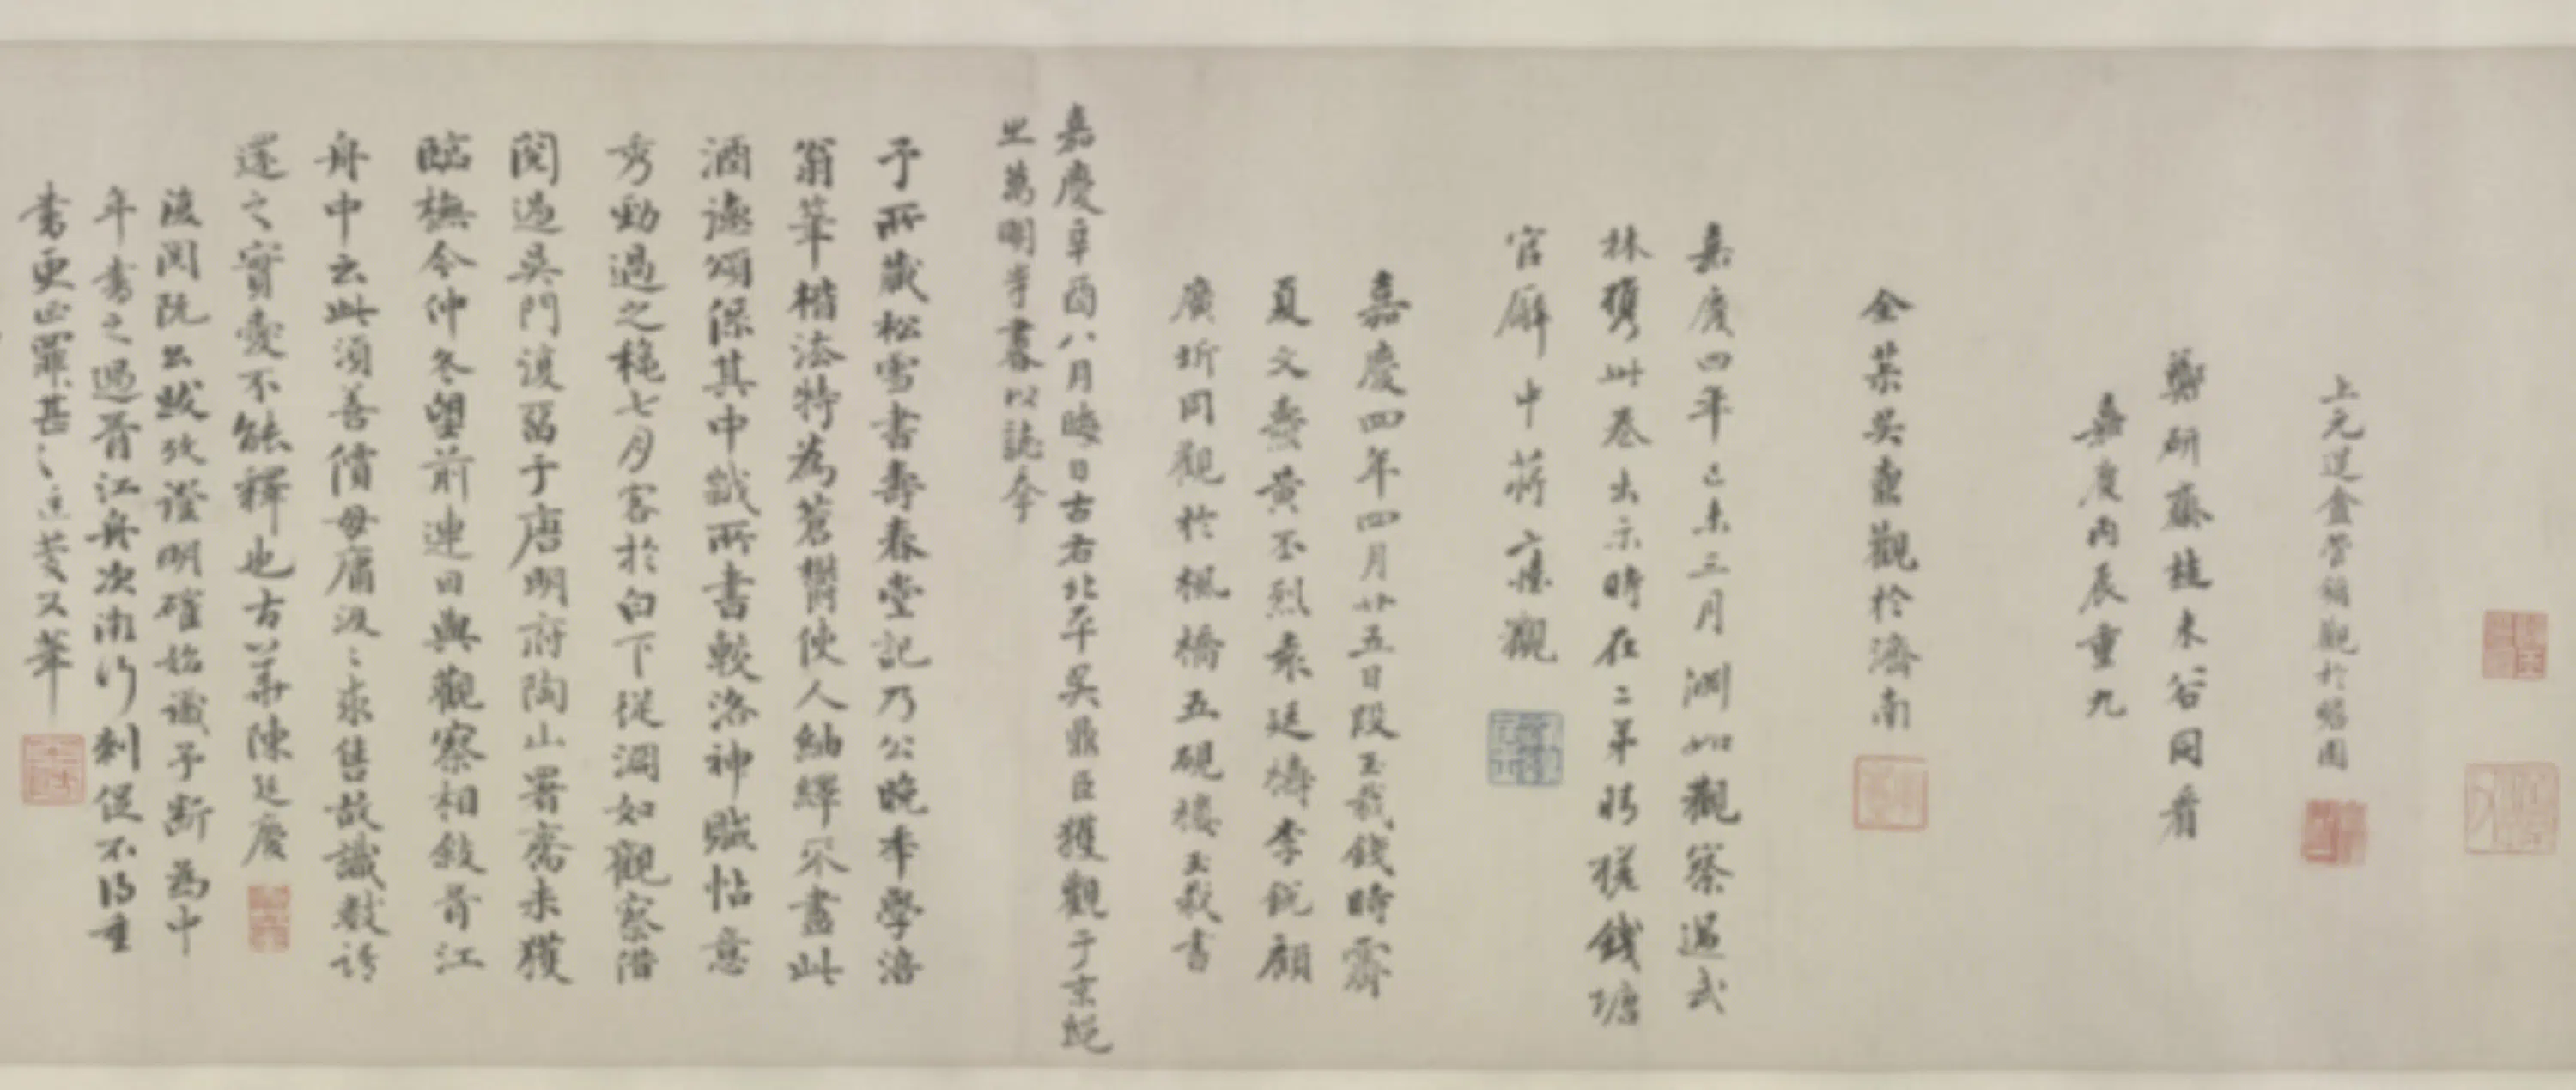 上元連盦管鏑觀於媚園
鄭研齋桂未谷同看
嘉慶丙辰重九
全芾吳鼒觀於濟南
嘉慶四年己未三月淵如觀察過武
林攜此卷出示時在二弟時槎錢塘
官廨中蔣觀
嘉慶四年四月廿五日段玉裁錢時霽
夏文燾黃丕烈袁廷檮李銳顧
廣圻同觀於楓橋五硯樓玉裁書
嘉慶辛酉八月晦日古右北平吳鼎臣獲觀于京綎
止萬明寺書以誌幸
予所藏松雪書壽春堂記乃公晚年學涪
翁筆楷法特為蒼鬱使人紬繹不盡此
酒德頌係其中歲所書較洛神賦帖意
秀勁過之龝七月客於白下從淵如觀察借
閱過吳門復留于唐明府陶山署齋未獲
臨橅今仲冬望前連日與觀察相敘胥江
舟中云此須善價毋庸汲汲求售故識數語
還之寶愛不能釋也古華陳廷慶
後閱阮公跋攷證明確始識予斷為中
年書之過胥江舟次湘行刺促不得重
書更正罪甚罪甚廷慶又筆